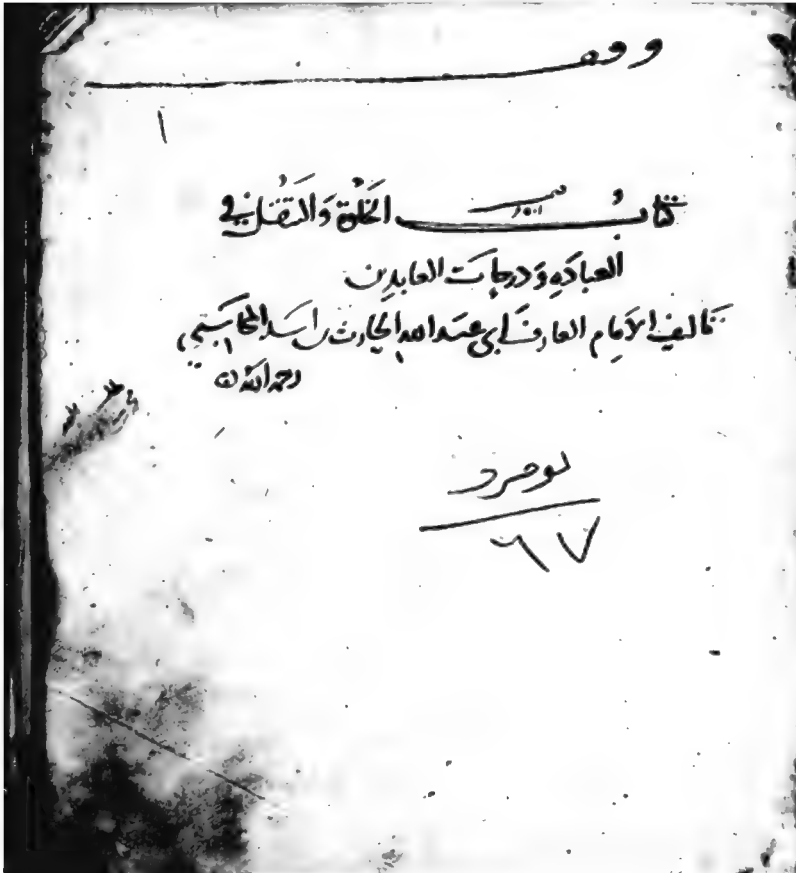 وقف
١
كتاب الخلوة والتنقل في
العبادة ودرجات العابدين
تأليف الامام العارف ابي عبد الله الحارث بن اسد المحاسبي
رحمه الله
٦٧